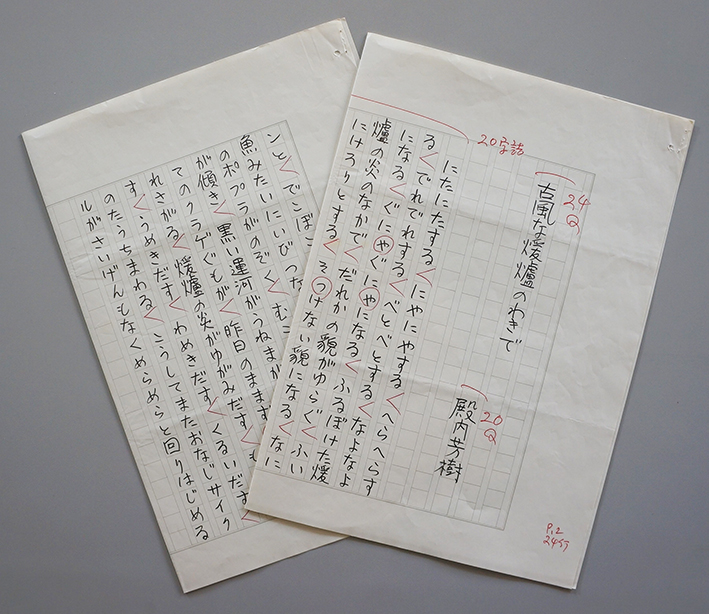 24Q
古風な煖爐のわきで
20Q
殿内芳樹
20字詰
にたにたする にやにやする へらへらす
る でれでれする べとべとする なよなよ
になる ぐにやぐにやになる ふるぼけた煖
爐の炎のなかで だれかの貌がゆらぐ ふい
にけろりとする そつけない貌になる なに
P.2
24行
ンと でこぼこ
魚みたいにいびつな むこ
のポプラがのぞく
が傾き 黒い運河がうねまが
てのクラゲぐもが 昨日のまます
れさがる 煖爐の炎がゆがみだす
す うめきだす わめきだす くるいだす
のたうちまわる こうしてまたおなじサイク
ルがさいげんもなくめらめらと回りはじめる